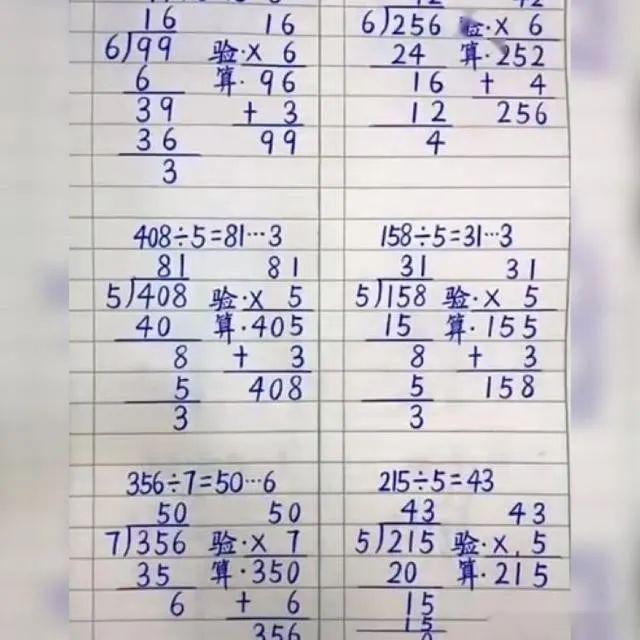 16 16
6)99 验·× 6
6 算·96
39 + 3
36 99
3
6)256 验·× 6
24 算·252
16 + 4
12 256
4
408÷5=81…3
81 81
5)408 验·× 5
40 算·405
8 + 3
5 408
3
158÷5=31…3
31 31
5)158 验·× 5
15 算·155
8 + 3
5 158
3
356÷7=50…6
50 50
7)356 验·× 7
35 算·350
6 + 6
356
215÷5=43
43 43
5)215 验·× 5
20 算·215
15
15